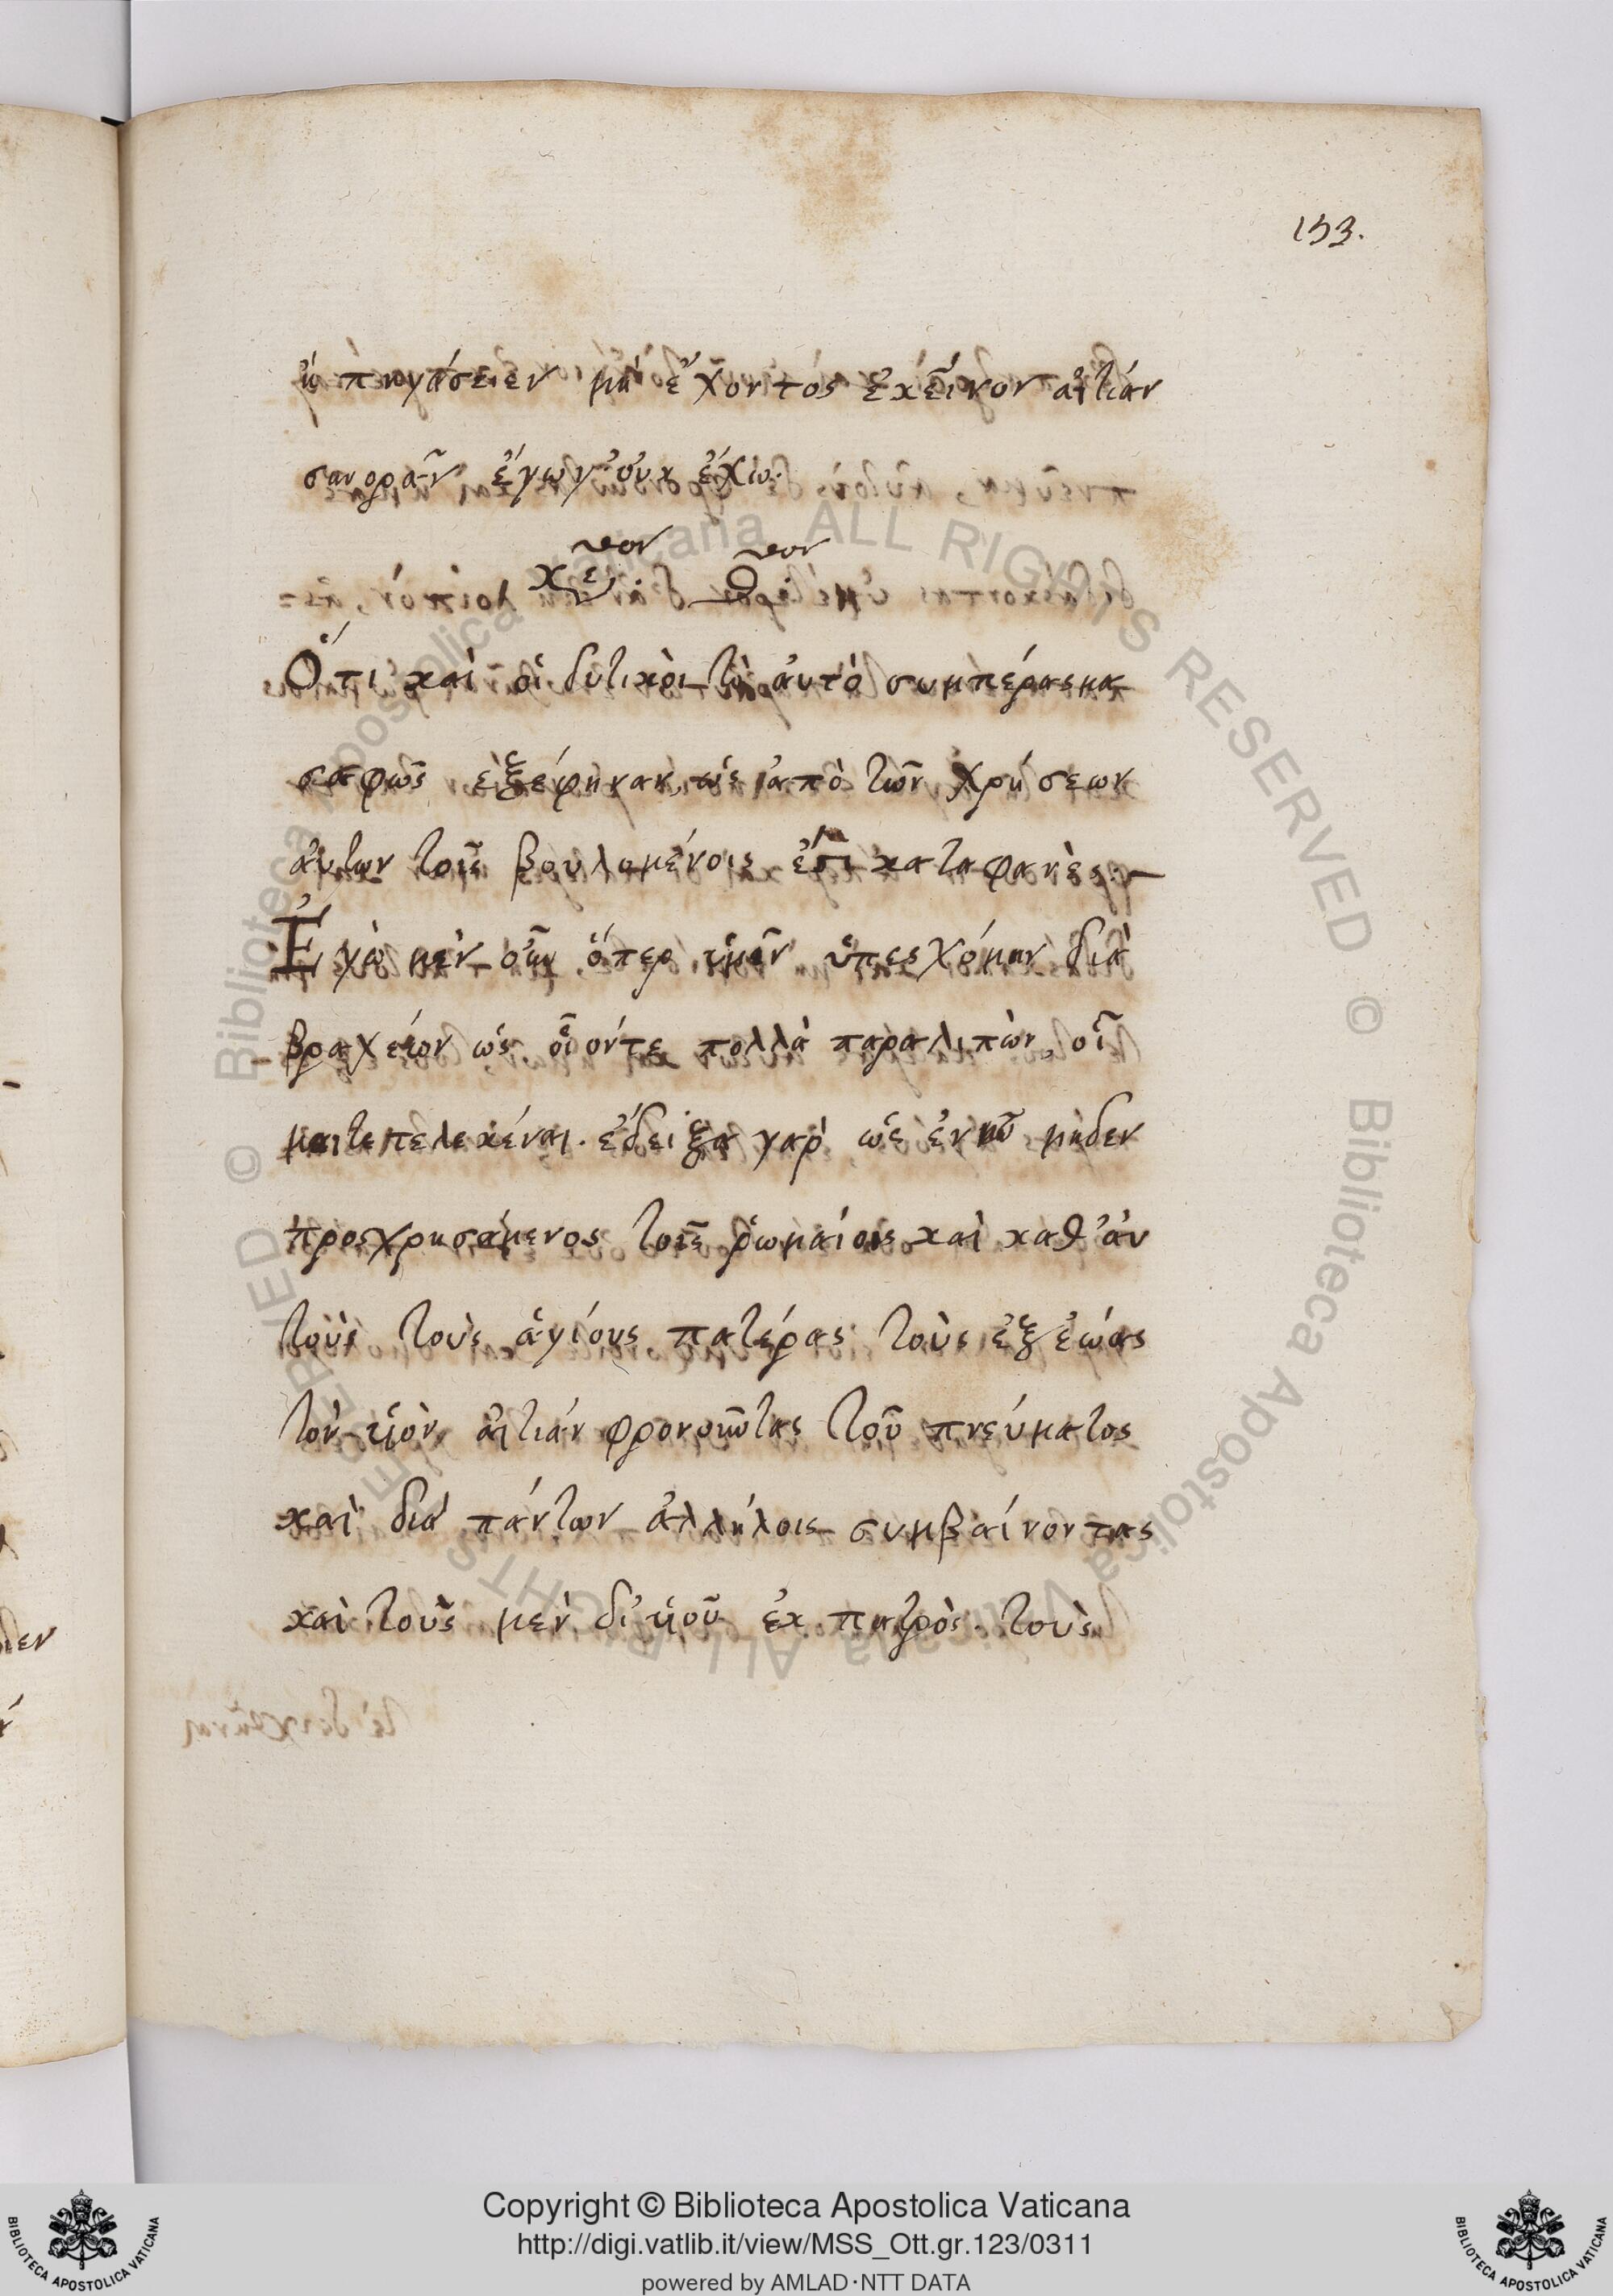 153.
ἢ πηγάσειεν μὴ ἔχοντος ἐκεῖνον αἰτίαν
συνορᾶν ἔγωγ' οὐκ ἔχω.
Ὅτι καὶ οἱ δυτικοὶ τὸ ἀυτὸ συμπέρασμα
σαφῶς ἐξέφηναν, ὡς ἀπὸ τῶν χρήσεων
ἀυτων τοῖς βουλομένοις ἐστὶ καταφανὲς.
Ἐγὼ μὲν οὖν ὅπερ ὑμῖν ὑπεσχόμην διὰ
βραχέων ὡς οἷόντε πολλὰ παραλιπὼν, οἶ
μαι τετελεκέναι. ἔδειξα γαρ ὡς ἐν μηδεν
προσχρησάμενος τοῖς ῥωμαίοις καὶ καθ' ἀυ
τοὺς τοὺς ἁγίους πατέρας τοὺς ἐξ ἑώας
τὸν υἱὸν αἰτίαν φρονοῦντας τοῦ πνεύματος
καὶ διὰ πάντων ἀλλήλοις συμβαίνοντας
καὶ τοὺς μὲν δι' υἱοῦ ἐκ πατρὸς. τοὺς
Copyright © Biblioteca Apostolica Vaticana
http://digi.vatlib.it/view/MSS_Ott.gr.123/0311
powered by AMLAD·NTT DATA
BIBLIOTECA APOSTOLICA VATICANA
BIBLIOTECA APOSTOLICA VATICANA
© Biblioteca Apostolica Vaticana ALL RIGHTS RESERVED
© Biblioteca Apostolica Vaticana ALL RIGHTS RESERVED